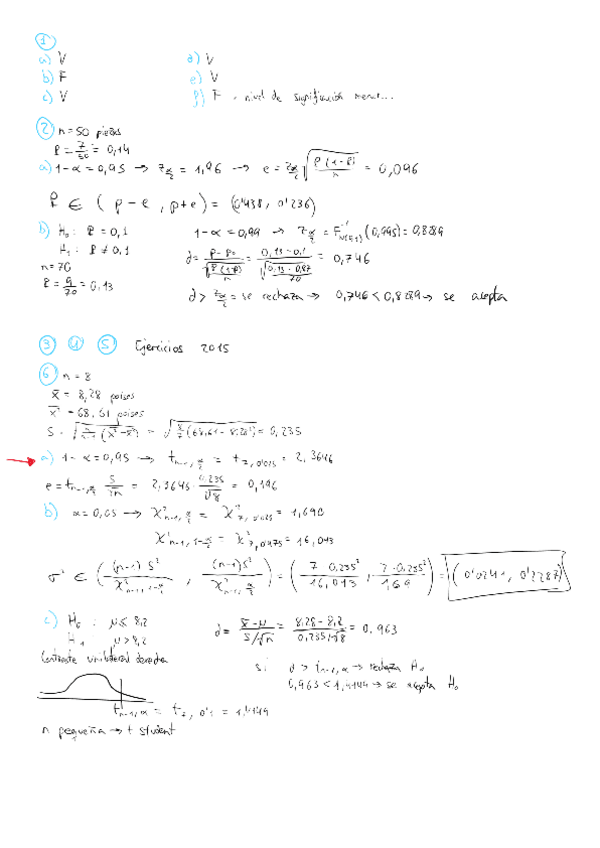 1
a) V
b) F
c) V
d) V
e) V
f) F · nivel de significación menor...
2 n = 50 piezas
P = 7/50 = 0,14
a) 1-α = 0,95 → z_{α/2} = 1,96 → e = z_{α/2} √(P(1-P)/n) = 0,096
P ∈ (p-e, p+e) = (0'0438, 0'236)
b) H₀: P = 0,1
H₁: P ≠ 0,1
n = 70
P = 9/70 = 0,13
1-α = 0,99 → z_{α/2} = F⁻¹_{N(0,1)}(0,995) = 0,8289
d = (P-P₀)/√(P(1-P)/n) = (0,13-0,1)/√(0,13·0,87/70) = 0,746
d > z_{α/2} = se rechaza → 0,746 < 0,8289 → se acepta
3 4 5 Ejercicios 2015
6 n = 8
x̄ = 8,28 poises
x̄² = 68,61 poises
S = √(n/(n-1)(x̄²-x̄²)) = √(8/7(68,61-8,28²)) = 0,235
a) 1-α = 0,95 → t_{n-1, α/2} = t_{7, 0'025} = 2,3646
e = t_{n-1, α/2} S/√n = 2,3645 · 0,235/√8 = 0,196
b) α = 0,05 → χ²_{n-1, α/2} = χ²_{7, 0'025} = 1,690
χ²_{n-1, 1-α/2} = χ²_{7, 0'975} = 16,013
σ² ∈ ((n-1)S²/χ²_{n-1, 1-α/2}, (n-1)S²/χ²_{n-1, α/2}) = (7·0,235²/16,013, 7·0,235²/1,69) = (0'0241, 0'2287)
c) H₀: μ ≤ 8,2
H₁: μ > 8,2
Contraste unilateral derecha
d = (x̄-μ)/(S/√n) = (8,28-8,2)/(0,235/√8) = 0,963
si d > t_{n-1, α} → rechaza H₀
0,963 < 1,4149 → se acepta H₀
t_{n-1, α} = t_{7, 0'1} = 1,4149
n pequeña → t student